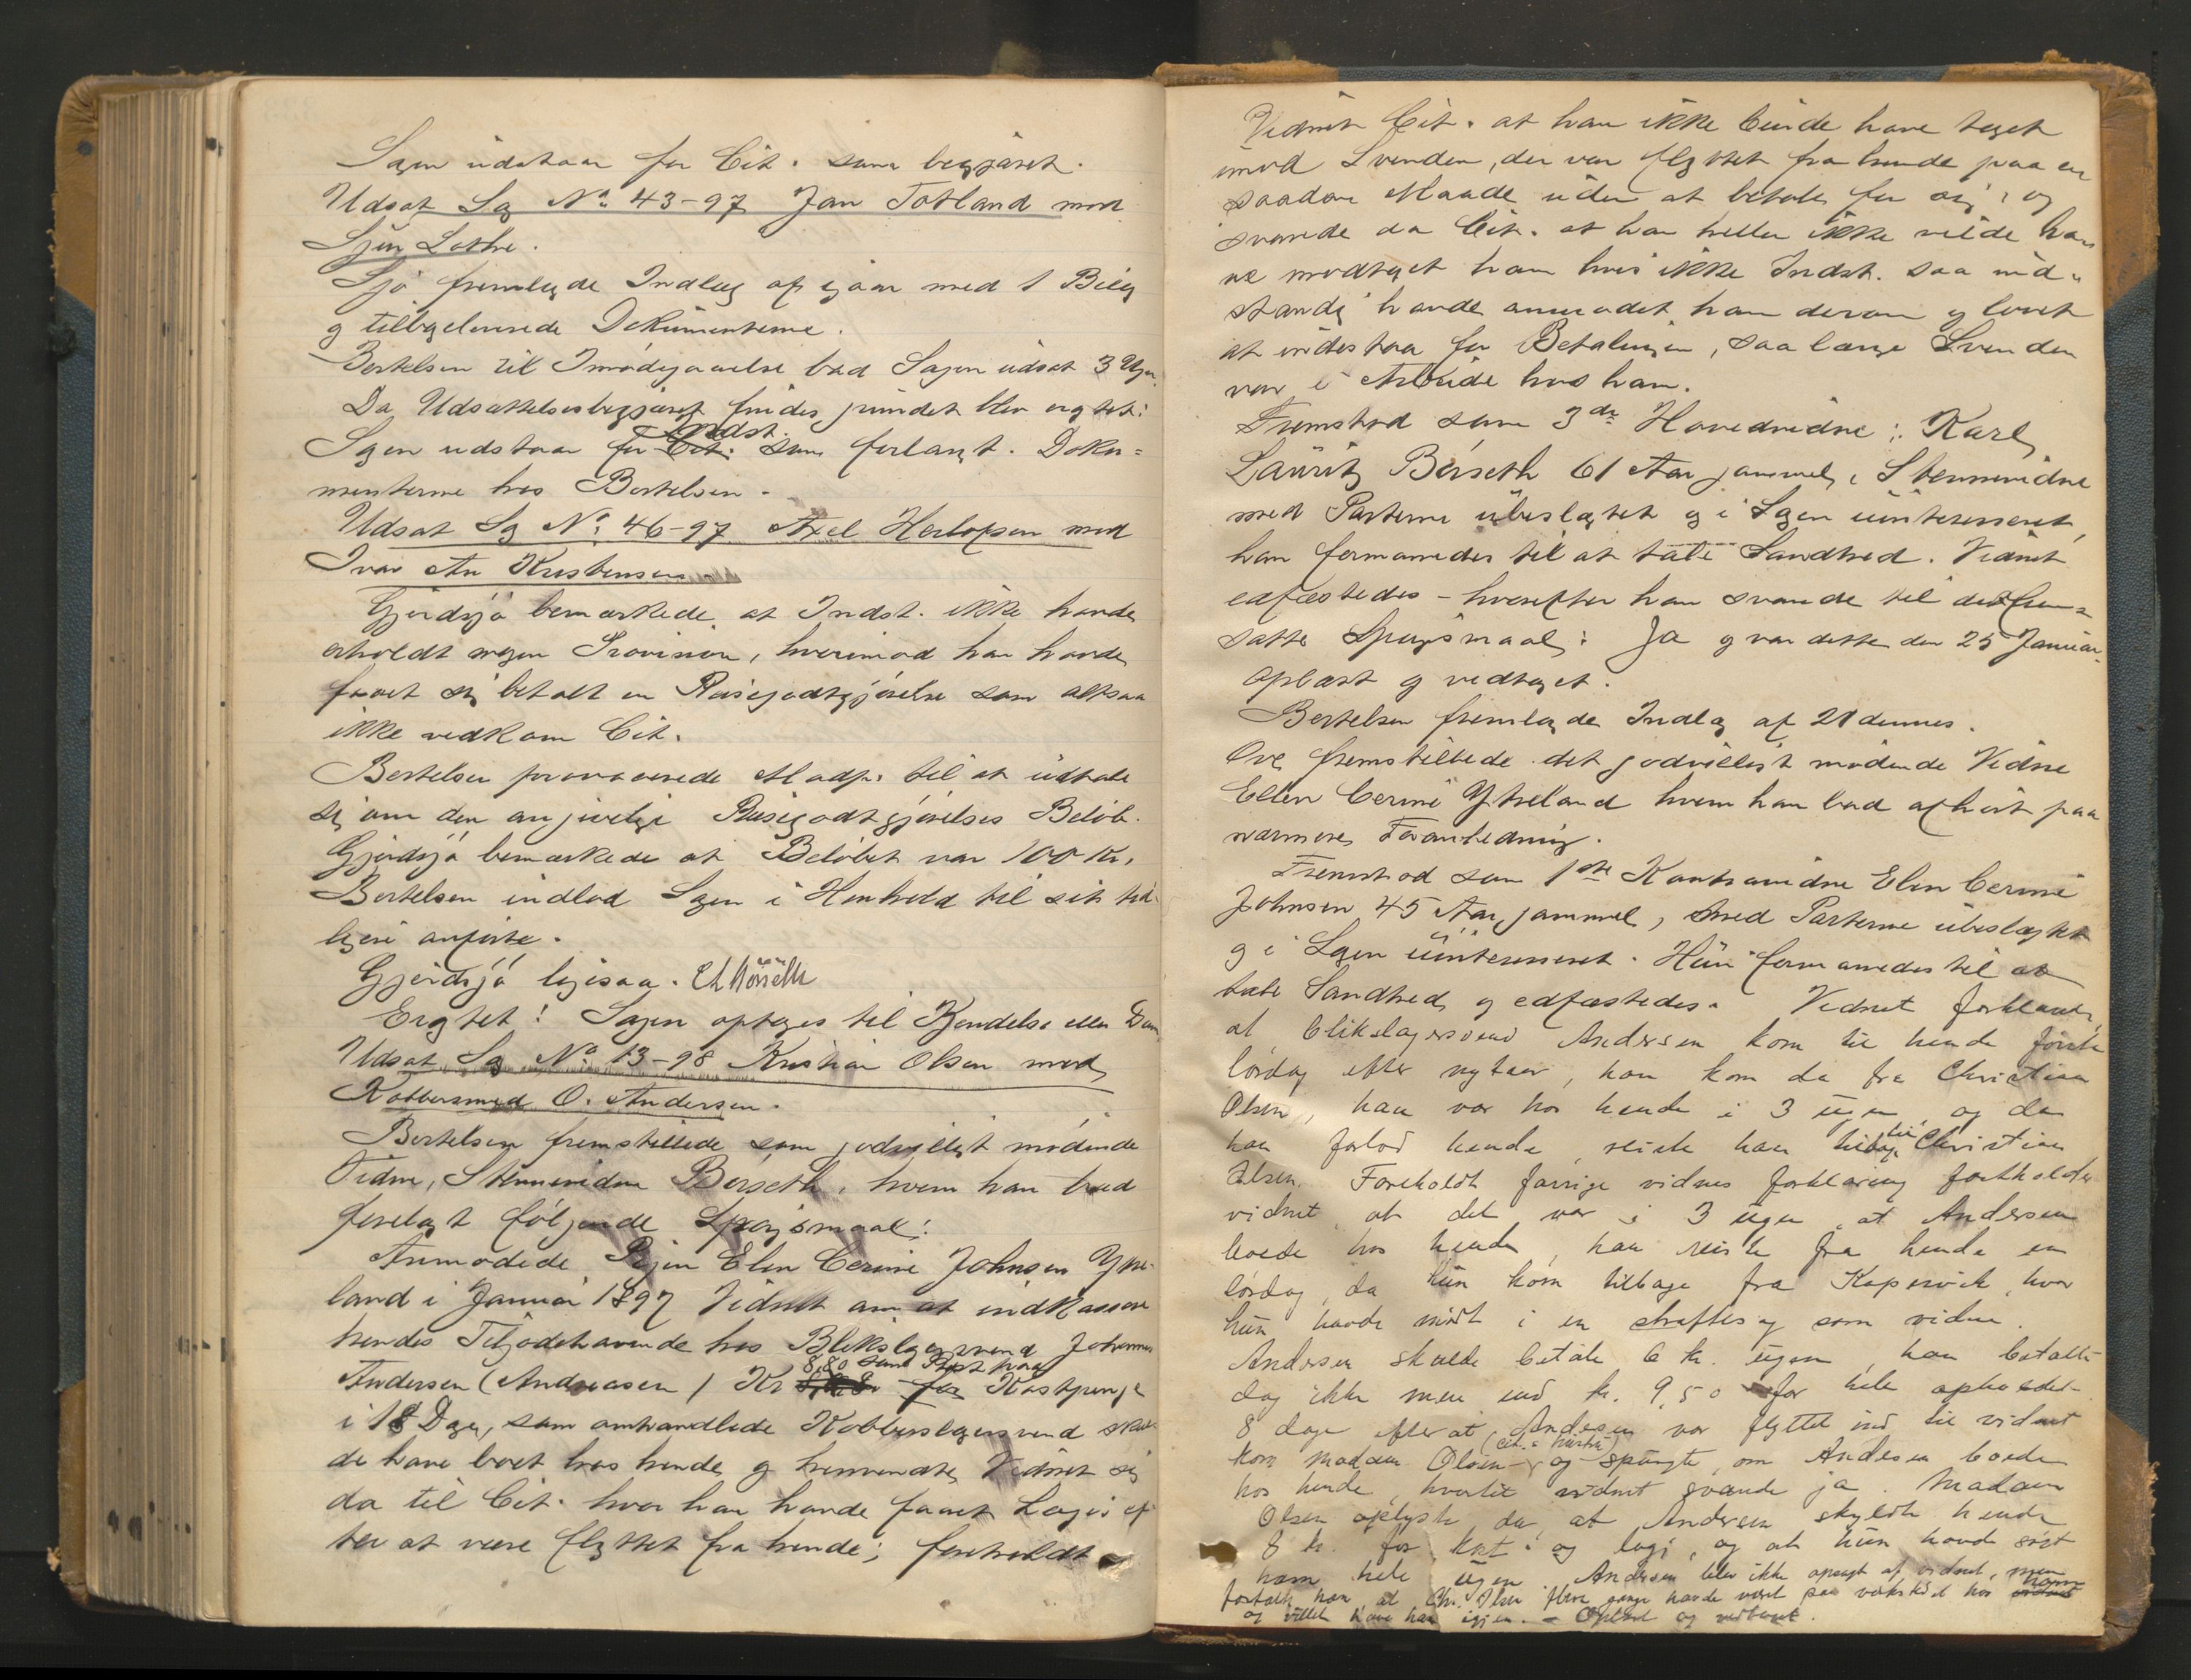 Sagen udstaar for Cit. som begjæret.
Udsat Sag No. 43-97 Jan Totland mod
Sjur Lothe.
Sjö fremlagde Indlæg af igaar med 1 Bilag
og tilbageleverede Dokumenterne.
Bertelsen til Imødegaaelse bad Sagen udsat 3 Uger.
Da Udsættelsesbegjæret findes grundet blev eragtet:
Indst.
Sagen udstaar for Cit. som forlangt. Doku=
menterne hos Bertelsen.
Udsat Sag No. 46-97 Axel Herlofsen mod
Ivar An Kristensen
Gjerdsjö bemærkede at Indst. ikke havde
erholdt nogen Provision, hvorimod han havde
faaet sig betalt en Reisegodtgjörelse som altsaa
ikke vedkom Cit.
Bertelsen provocerede Modp. til at udtale
sig om den angivelige Reisegodtgjörelses Belöb.
Gjerdsjö bemærkede at Belöbet var 100 Kr.
Bertelsen indlod Sagen i Henhold til sit tid-
ligere anförte.
Gjerdsjö ligesaa.
Eragtet: Sagen optages til Kjendelse eller Dom
Udsat Sag No. 13-98 Kristian Olsen mod
Kobbersmed O. Andersen.
Bertelsen fremstillede som godvilligt mödende
Vidne, Stevnevidne Börseth, hvem han bad
forelagt fölgende Spørgsmaal:
Anmodede Pigen Elen Cerine Johnsen Ytre-
land i Januar 1897 Vidnet om at indkassere
hendes Tilgodehavende hos Blikslagersvend Johannes
8,80 som Rest paa
Andersen (Andreasen) Kr for Kostpenge
i 18 Dage, som omhandlede Kobberslagersvend skul-
de have boet hos hende og henvendte Vidnet sig
da til Cit. hvor han havde faaet Logis ef-
ter at være flyttet fra hende; foreholdt
Vidnet Cit. at han ikke burde have taget
imod Svenden, der var flyttet fra hende paa en
saadan Maade uden at betale for sig, og
svarede da Cit. at han heller ikke vilde ha-
ve modtaget ham hvis ikke Indst. saa ind-
stændig havde anmodet ham derom og lovet
at indestaa for Betalingen, saa længe Svenden
var i Arbeide hos ham.
Fremstod som 3die Hovedvidne: Karl
Lauritz Börseth 61 Aar gammel, Stevnevidne
med Parterne ubeslægtet og i Sagen uinteresseret,
han formanedes til at tale Sandhed. Vidnet
edfæstedes - hvorefter han svarede til det frem-
satte Spørgsmaal: Ja og var dette den 25 Januar.
Oplæst og vedtaget.
Bertelsen fremlagde Indlæg af 21 dennes.
Ove fremstillede det godvilligt mødende Vidne
Elen Cerine Ytreland hvem han bad afhört paa
nærmere Foranledning.
Fremstod som 1ste Kontravidne Elen Cerine
Johnsen 45 Aar gammel, med Parterne ubeslægtet
og i Sagen uinteresseret. Hun formanedes til at
tale Sandhed og edfæstedes. Vidnet forklarte,
at blikslagersvend Andersen kom til hende første
lördag efter nytaar, han kom da fra Christian
Olsen, han var hos hende i 3 uger og da
han forlod hende, reiste han til Christian
Olsen. Foreholdt forrige vidnes forklaring fastholder
vidnet, at det var i 3 uger, at Andersen
boede hos hende, han reiste fra hende en
lördag, da hun kom tilbage fra Kopervik, hvor
hun havde mödt i en straffesag som vidne.
Andersen skulde betale 6 kr. ugen, han betalte
dog ikke mere end kr. 9,50 for hele opholdet.
8 dage efter at Andersen var flyttet ind til vidnet
(cit.s hustru)
kom madam Olsen og spurgte, om Andersen boede
hos hende, hvortil vidnet svarede ja. Madam
Olsen oplyste da, at Andersen skyldte hende
8 kr. for kost og logi, og at hun havde sögt
ham hele ugen. Andersen blev ikke opsagt af vidnet, men
fortalte han at Chr. Olsen flere gange havde været paa værkstedet hos ham
og villet have ham igjen. - Oplæst og vedtaget.